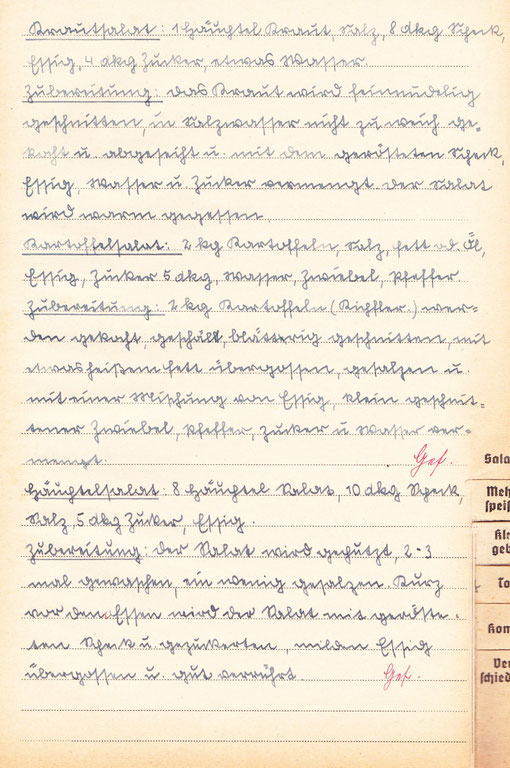 Krautsalat: 1 Häuptel Kraut, Salz, 8 dkg Speck,
Essig, 4 dkg Zucker, etwas Wasser.
Zubereitung: das Kraut wird feinnudelig
geschnitten, in Salzwasser nicht zu weich ge-
kocht u. abgeseiht u. mit dem gerösteten Speck,
Essig, Wasser u. Zucker vermengt. der Salat
wird warm gegessen.
Kartoffelsalat: 2 kg Kartoffeln, Salz, Fett od. Öl,
Essig, Zucker 5 dkg, Wasser, Zwiebel, Pfeffer.
Zubereitung: 2 kg Kartoffeln (Kipfler.) wer-
den gekocht, geschält, blätterig geschnitten, mit
etwas heißem Fett übergossen, gesalzen u.
mit einer Mischung von Essig, klein geschnit-
tener Zwiebel, Pfeffer, Zucker u Wasser ver-
mengt. Ges.
Häuptelsalat: 8 Häuptel Salat, 10 dkg Speck,
Salz, 5 dkg Zucker, Essig.
Zubereitung: der Salat wird geputzt, 2-3
mal gewaschen, ein wenig gesalzen. Kurz
vor dem Essen wird der Salat mit geröste-
ten Speck u. gezuckerten, milden Essig
übergossen u. gut verrührt. Ges.
Sala
Meh
speis
Kle
geb
To
Kom
Ver
schied